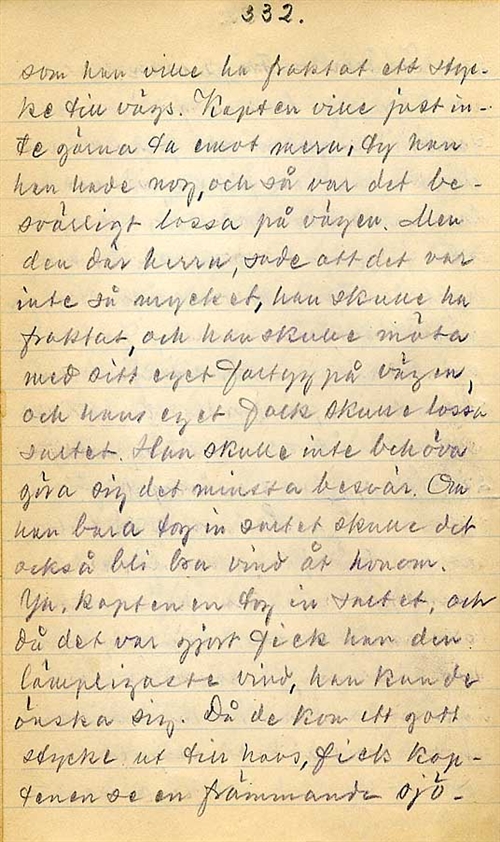 332.
som han ville ha fraktat ett styc-
ke till vägs. Kapten ville just in-
te gärna ta emot mera, ty han
han hade nog, och så var det be-
svärligt lossa på vägen. Men
den där herrn, sade att det var
inte så mycket, han skulle ha
fraktat, och han skulle möta
med sitt eget fartyg på vägen,
och hans eget folk skulle lossa
saltet. Han skulle inte behöva
göra sig det minsta besvär. Om
han bara tog in saltet skulle det
också bli bra vind åt honom.
Ja, kaptenen tog in saltet, och
då det var gjort fick han den
lämpligaste vind, han kunde
önska sig. Då de kom ett gott
stycke ut till havs, fick kap-
tenen se en främmande sjö-